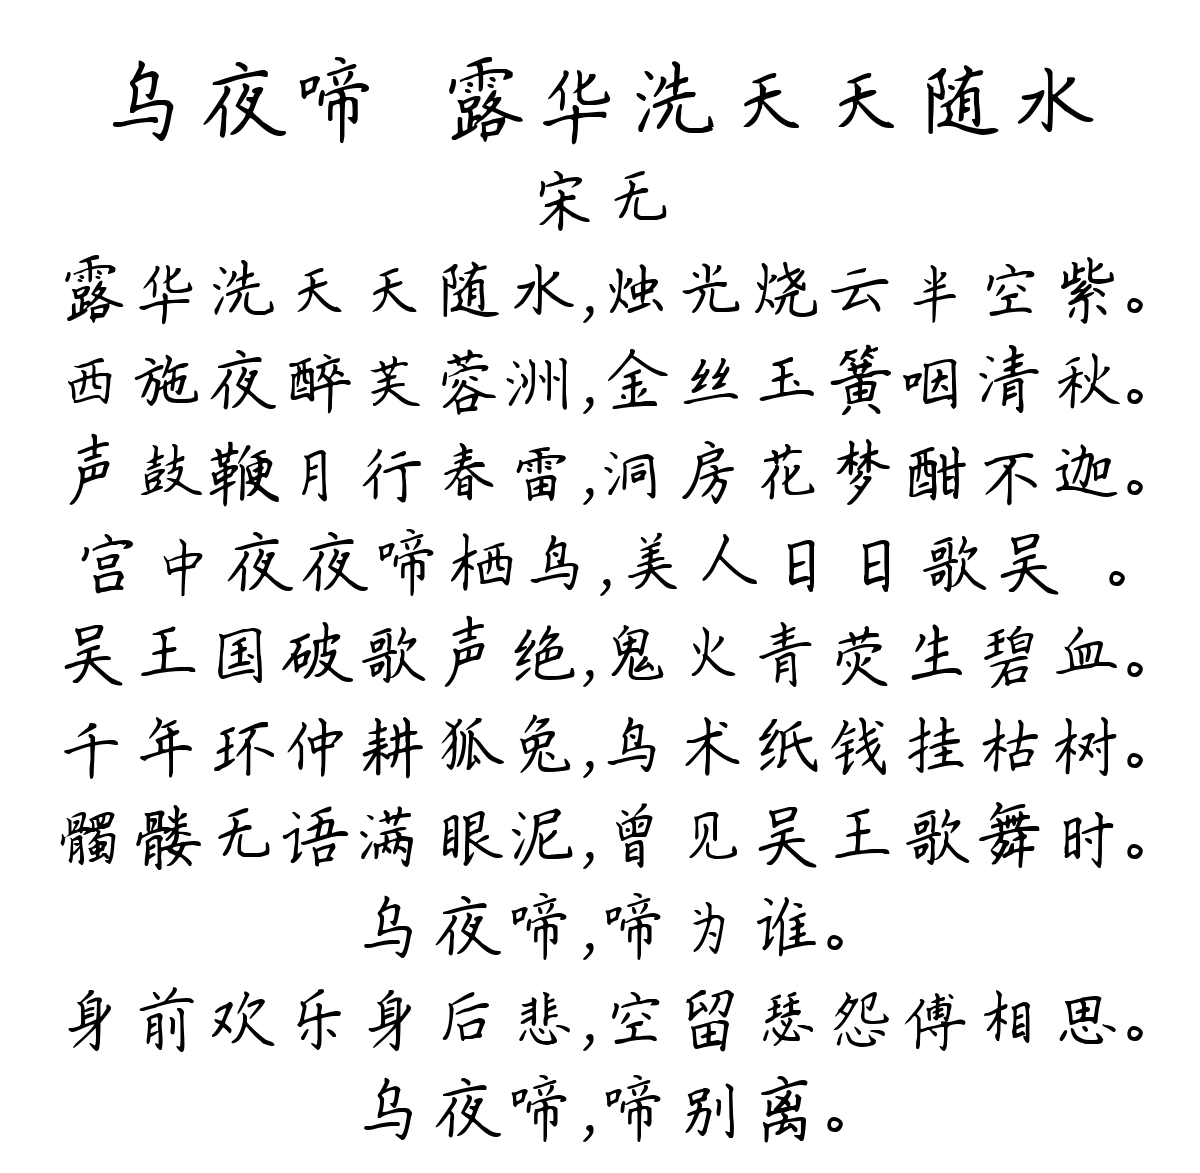 乌夜啼 露华洗天天随水
宋无
露华洗天天随水,烛光烧云半空紫。
西施夜醉芙蓉洲,金丝玉簧咽清秋。
声鼓鞭月行春雷,洞房花梦酣不迦。
宫中夜夜啼栖鸟,美人日日歌吴 。
吴王国破歌声绝,鬼火青荧生碧血。
千年环仲耕狐兔,鸟术纸钱挂枯树。
髑髅无语满眼泥,曾见吴王歌舞时。
乌夜啼,啼为谁。
身前欢乐身后悲,空留瑟怨傅相思。
乌夜啼,啼别离。